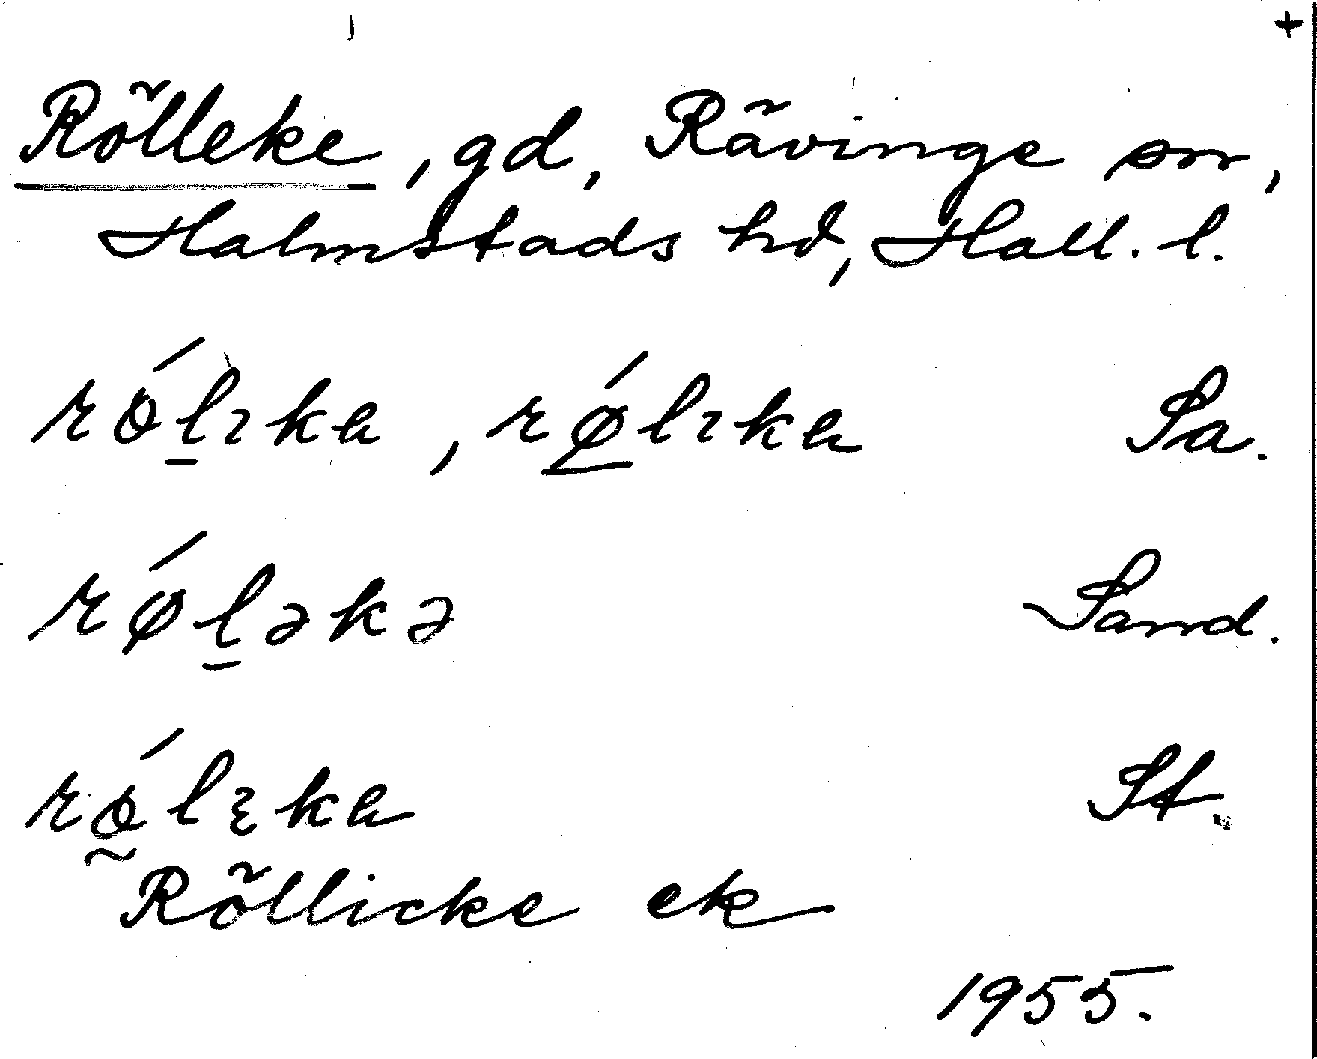 +
Rölleke, gd, Rävinge sn,
Halmstads hd, Hall. l.
ró̱lıka, rǿ̱lıka Sa.
rǿḻəkə Sand.
ró̰lɛka St.
Röllicke ek
1955.